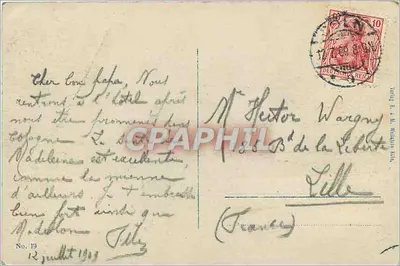 Cher bon papa, Nous
rentrons à l'hôtel après
nous être promenés dans
Cologne. La santé de
Madeleine est excellente,
comme la mienne
d'ailleurs. Je t'embrasse
bien fort ainsi que
Madelon
12 juillet 1909
No. 19
Mr Hector Wargny
28 Bd de la Liberté
Lille
(France)
10
CPAPHIL